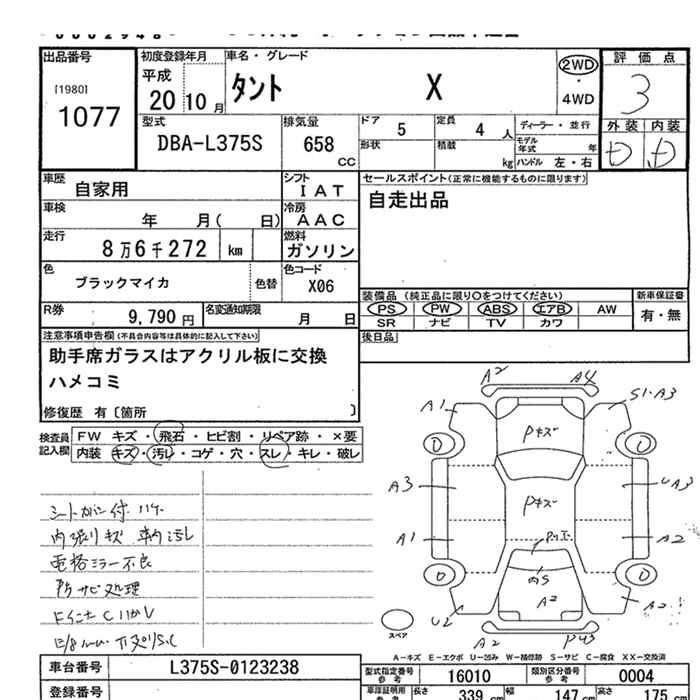 出品番号
[1980]
1077
初度登録年月
平成
20 10 月
車名・グレード
タント X
2WD
・
4WD
評価点
3
外装 内装
D D
型式
DBA-L375S
排気量
658
CC
ドア 5
定員 4 人
ディーラー・並行
形状
積載 kg
モデル年式 年
ハンドル 左・右
車歴
自家用
シフト
IAT
車検
年 月( 日)
冷房
AAC
走行
8万6千272 km
燃料
ガソリン
色
ブラックマイカ
色替
色コード
X06
R券
9,790 円
名変通知期限
月 日
セールスポイント(正常に機能するものに限ります)
自走出品
装備品 (純正品に限り〇をつけてください)
PS PW ABS エアB AW
SR ナビ TV カワ
新車保証書
有・無
後日品
注意事項申告欄(不具合内容等は具体的に記入して下さい)
助手席ガラスはアクリル板に交換
ハメコミ
修復歴 有〔箇所 〕
検査員
記入欄
FW キズ・飛石・ヒビ割・リペア跡・×要
内装 キズ・汚レ・コゲ・穴・スレ・キレ・破レ
シートカバー付
内張りキズ 車内汚し
電格ミラー不良
防サビ処理
A2 A4
A1 S1・A3
Pキズ
D D
A3 Pキズ UA3
A1 A2
D D
内S
A2
U2 A2
スペア
A2
A-キズ E-エクボ U-凹み W-補修跡 S-サビ C-腐食 XX-交換済
車台番号
L375S-0123238
登録番号
型式指定番号
参考
16010
類別区分番号
参考
0004
車庫証明用
長さ 339 cm
幅 147 cm
高さ 175 cm